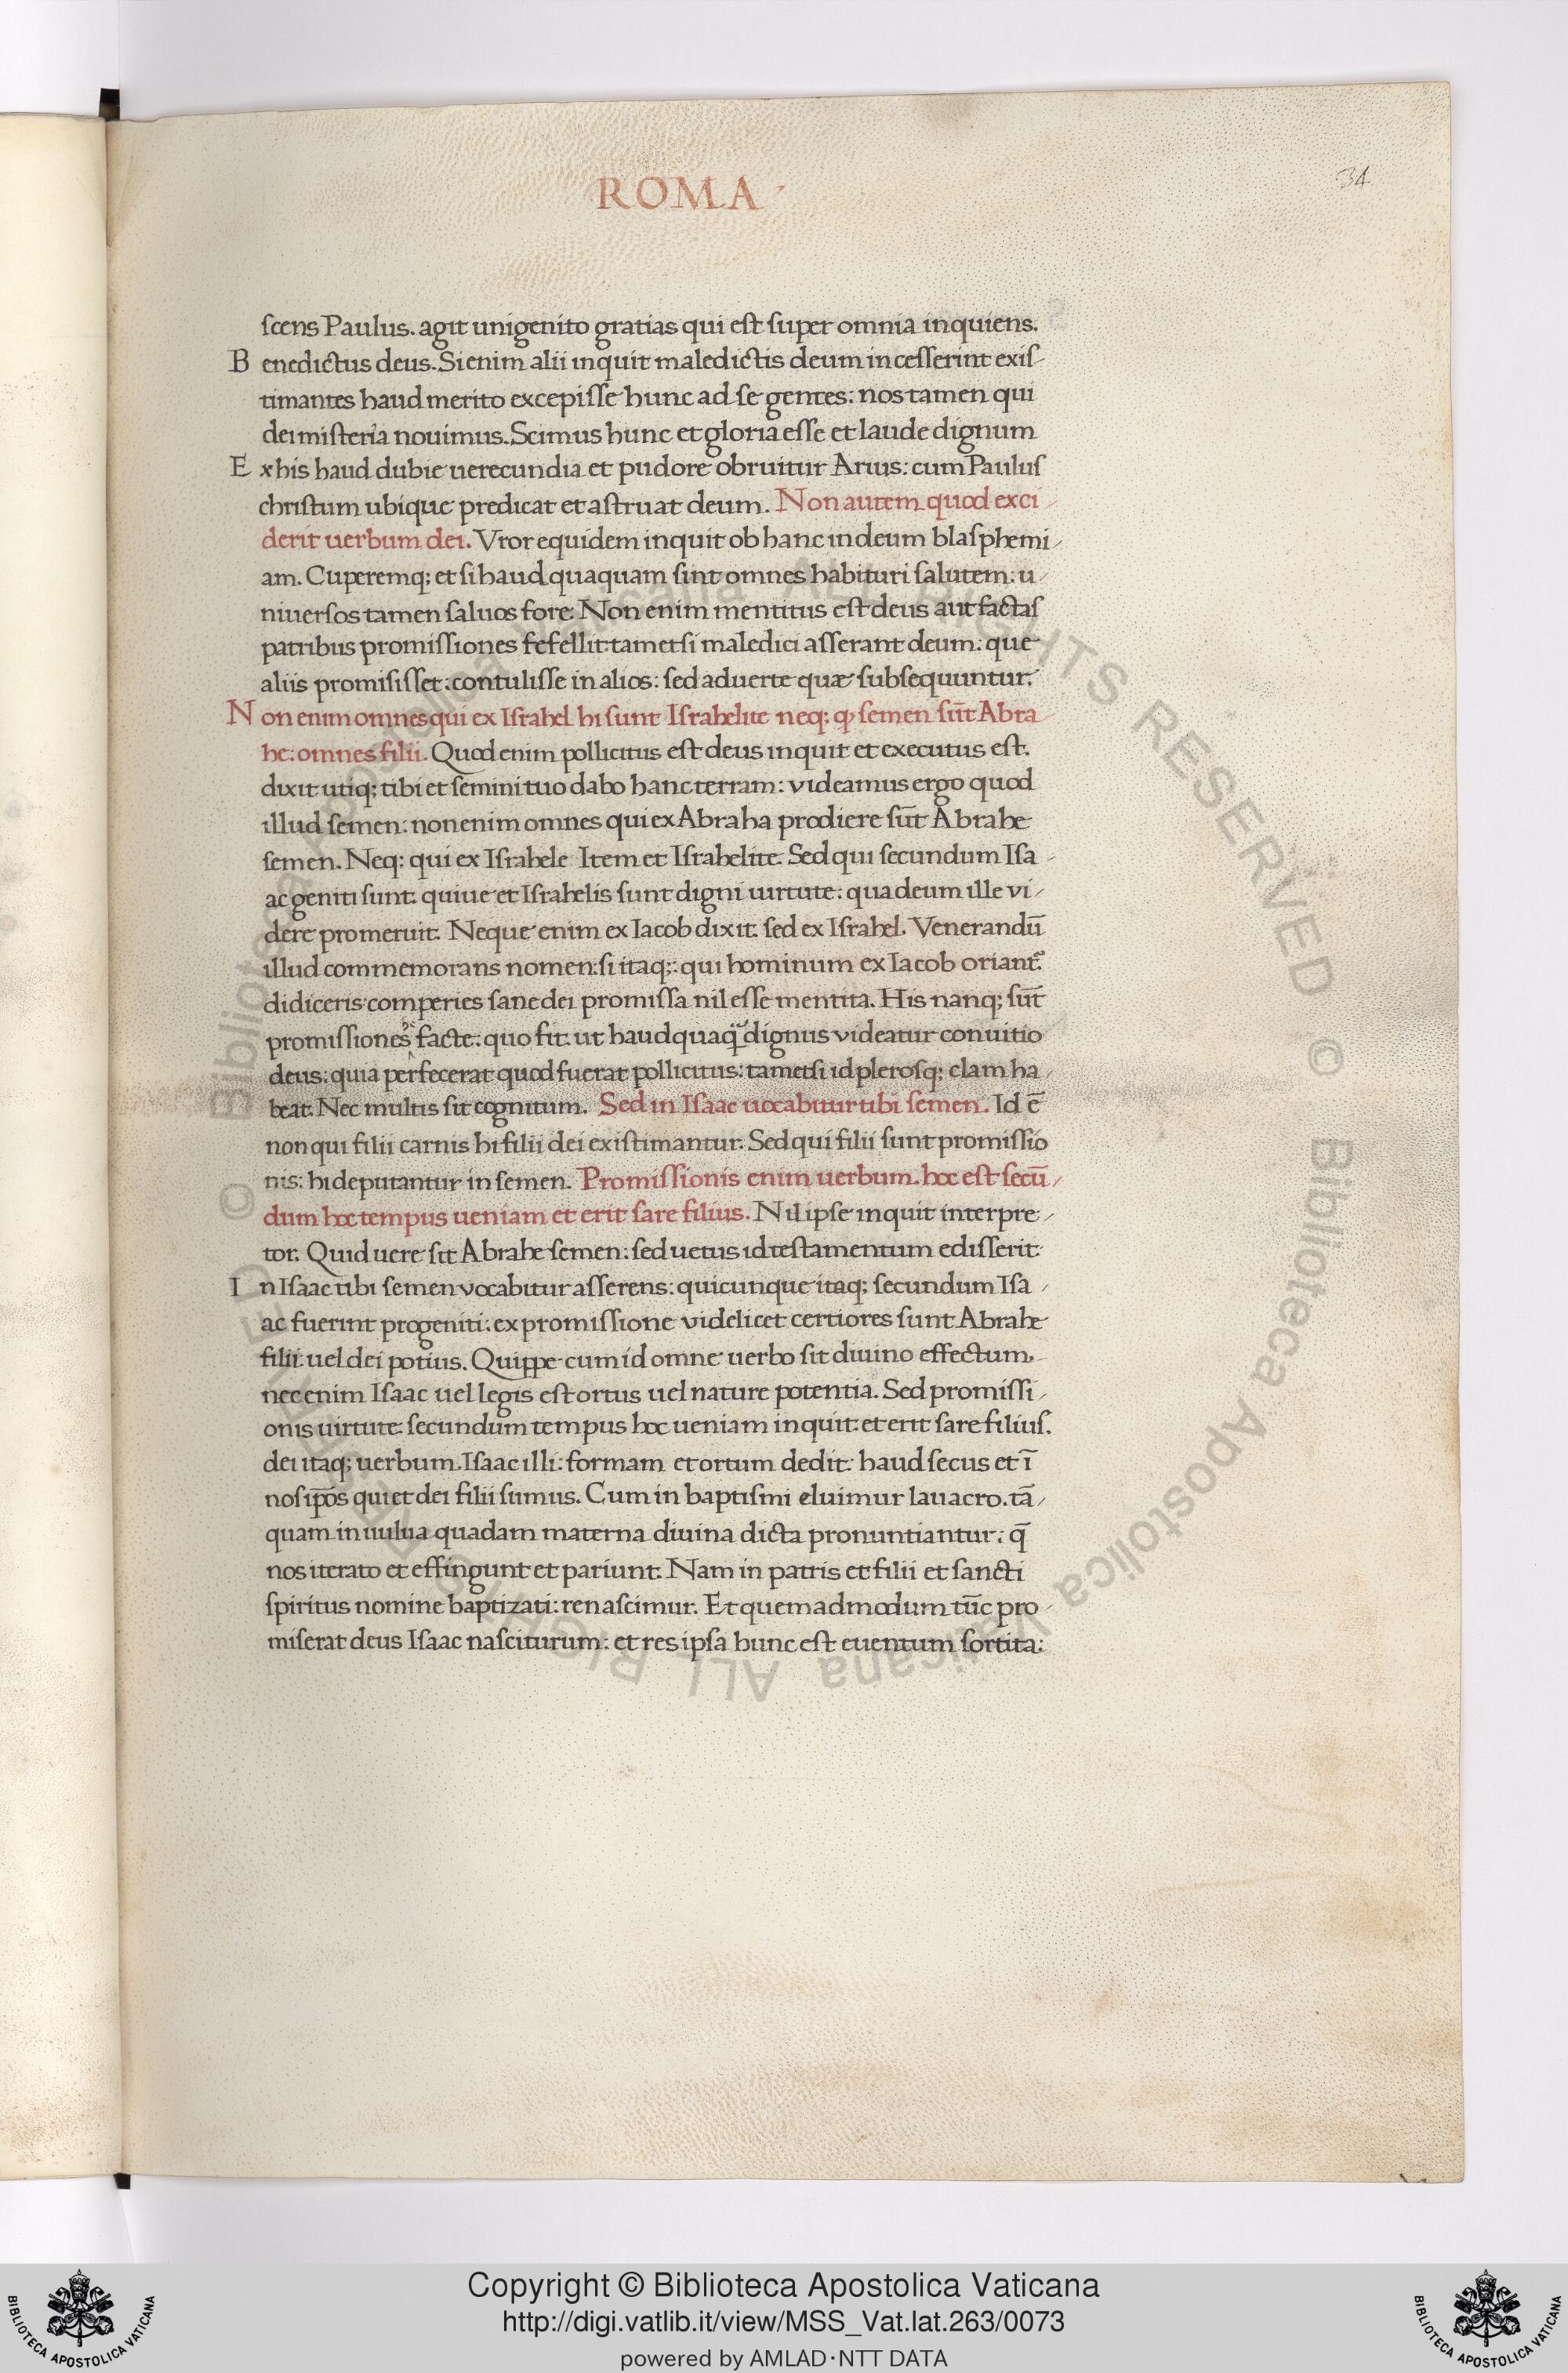 ROMA
34
scens Paulus. agit unigenito gratias qui est super omnia inquiens.
Benedictus deus. Si enim alii inquit maledictis deum incesserint exis-
timantes haud merito excepisse hunc ad se gentes: nos tamen qui
dei misteria nouimus. Scimus hunc et gloria esse et laude dignum
Ex his haud dubie uerecundia et pudore obruitur Arius: cum Paulus
christum ubique predicat et astruat deum. Non autem quod exci-
derit uerbum dei. Vror equidem inquit ob hanc in deum blasphemi-
am. Cuperemq; et si haud quaquam sint omnes habituri salutem: u-
niuersos tamen saluos fore. Non enim mentitus est deus aut factas
patribus promissiones fefellit: tametsi maledici asserant deum: que
aliis promisisset: contulisse in alios: sed aduerte quæ subsequuntur.
Non enim omnes qui ex Israhel hi sunt Israhelite neq; ꝙ semen sūt Abra-
he: omnes filii. Quod enim pollicitus est deus inquit et executus est.
dixit utiq; tibi et semini tuo dabo hanc terram: videamus ergo quod
illud semen: non enim omnes qui ex Abraha prodiere sūt Abrahe
semen. Neq: qui ex Israhele Item et Israhelite. Sed qui secundum Isa-
ac geniti sunt. quiue et Israhelis sunt digni uirtute: qua deum ille vi-
dere promeruit. Neque enim ex Iacob dixit. sed ex Israhel. Venerandū
illud commemorans nomen: si itaq;: qui hominum ex Iacob oriant᷑.
didiceris comperies sane dei promissa nil esse mentita. His nanq; sūt
promissiones facte: quo fit. ut haudquaq̄ dignus videatur conuitio
deus: quia perfecerat quod fuerat pollicitus: tametsi id plerosq; clam ha-
beat. Nec multis sit cognitum. Sed in Isaac uocabitur tibi semen. Id ē
non qui filii carnis hi filii dei existimantur. Sed qui filii sunt promissio
nis: hi deputantur in semen. Promissionis enim uerbum. hoc est secū-
dum hoc tempus ueniam et erit sare filius. Nil ipse inquit interpre-
tor. Quid uere sit Abrahe semen: sed uetus id testamentum edisserit.
In Isaac tibi semen vocabitur asserens: quicunque itaq; secundum Isa-
ac fuerint progeniti: ex promissione videlicet certiores sunt Abrahe
filii: uel dei potius. Quippe cum id omne uerbo sit diuino effectum.
nec enim Isaac uel legis est ortus uel nature potentia. Sed promissi-
onis uirtute. secundum tempus hoc ueniam inquit. et erit sare filius.
dei itaq; uerbum. Isaac illi: formam et ortum dedit. haud secus et ī
nos ip̄os qui et dei filii sumus. Cum in baptismi eluimur lauacro. tā-
quam in uulua quadam materna diuina dicta pronuntiantur: q̄
nos iterato et effingunt et pariunt. Nam in patris et filii et sancti
spiritus nomine baptizati: renascimur. Et quemadmodum tūc pro-
miserat deus Isaac nasciturum: et res ipsa hunc est euentum sortita:
© Biblioteca Apostolica Vaticana ALL RIGHTS RESERVED © Biblioteca Apostolica Vaticana ALL RIGHTS RESERVED
BIBLIOTECA APOSTOLICA VATICANA
Copyright © Biblioteca Apostolica Vaticana
http://digi.vatlib.it/view/MSS_Vat.lat.263/0073
powered by AMLAD·NTT DATA
BIBLIOTECA APOSTOLICA VATICANA